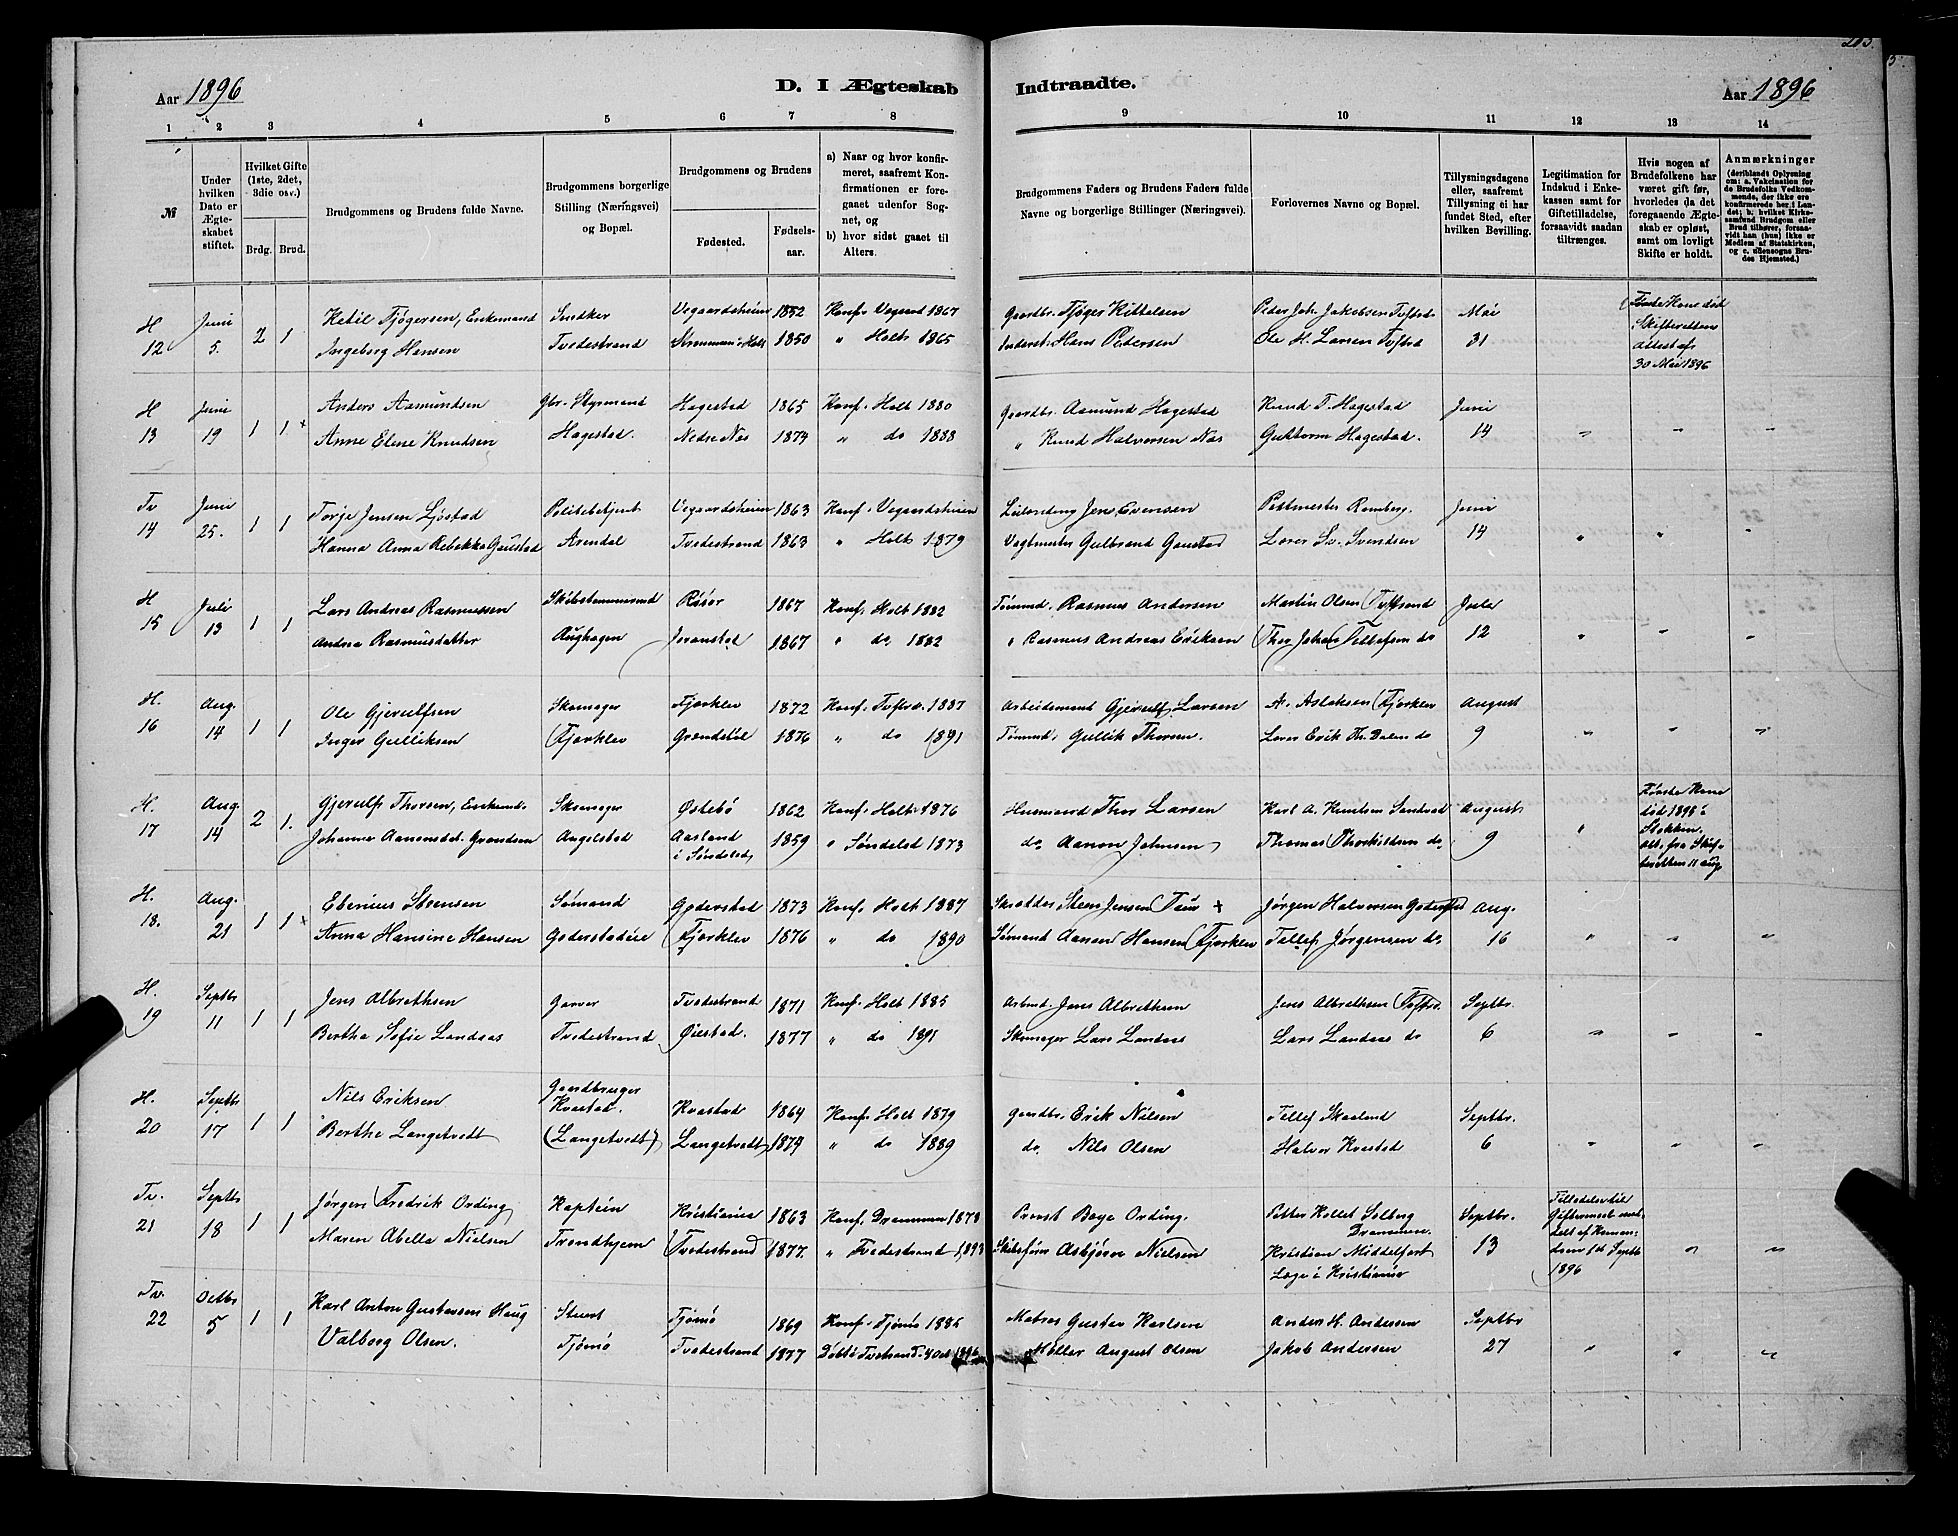 Aar 1896
D. I Ægteskab Indtraadte.
Aar 1896
1 2 3 4 5 6 7 8 9 10 11 12 13 14
№
Under hvilken Dato er Ægteskabet stiftet.
Hvilket Gifte (1ste, 2det, 3die osv.)
Brdg. Brud.
Brudgommens og Brudens fulde Navne.
Brudgommens borgerlige Stilling (Næringsvei) og Bopæl.
Brudgommens og Brudens
Fødested. Fødselsaar.
a) Naar og hvor konfirmeret, saafremt Konfirmationen er foregaaet udenfor Sognet, og
b) hvor sidst gaaet til Alters.
Brudgommens Faders og Brudens Faders fulde Navne og borgerlige Stillinger (Næringsvei).
Forlovernes Navne og Bopæl.
Tillysningsdagene eller, saafremt Tillysning ei har fundet Sted, efter hvilken Bevilling.
Legitimation for Indskud i Enkekassen samt for Giftetilladelse, forsaavidt saadan tiltrænges.
Hvis nogen af Brudefolkene har været gift før, hvorledes da det foregaaende Ægteskab er opløst, samt om lovligt Skifte er holdt.
Anmærkninger (deriblandt Oplysning om: a. Vakcination for de Brudefolks Vedkommende, der ikke ere konfirmerede her i Landet; b. hvilket Kirkesamfund Brudgom eller Brud tilhører, forsaavidt han (hun) ikke er Medlem af Statskirken, og c. udensogns Brudes Hjemsted.)
H Juni Ketil Tjøgersen, Enkemand Snedker Vegaardsheien 1852 Konf. Vegaard 1867 Gaardbr. Tjøger Kittelsen Peder Joh. Jakobsen Tvstrd Mai Første Kone død
12 5. 2 1 Ingeborg Hansen Tvedestrand Holt 1850 " Holt 1865 Inderst Hans Pedersen Ole H. Larsen Tvstrd 31 Skifteretten attest af 30 Mai 1896
H Juni Anders Aasmundsen Gbr. Styrmand Hagestad 1865 Konf. Holt 1880 Gaardbr. Aasmund Hagestad Knud T. Hagestad Juni
13 19 1 1 Anne Elene Knudsen Hagestad. Nedre Næs 1874 " do 1888 " Knud Halvorsen Næs Guttorm Hagestad. 14 " " "
Tv Juni Torje Jensen Ljøstad Politibetjent Vegaardsheien 1863 Konf. Vegaardsheien Leilending Jens Evensen Postmester Romberg. Juni
14 25. 1 1 Hanna Anna Rebekka Gaustad Arendal Tvedestrand 1863 " Holt 1879 Vagtmester Gulbrand Gaustad Lærer Sv. Svendsen 14 " " "
H Juli Lars Andreas Rasmussen Skibstømmermd Risør 1867 Konf. Holt 1882 Tømmd. Rasmus Andersen Martin Olsen Tvstrand Juli
15 13 1 1 Andrea Rasmusdatter Aughagen Joranstad 1867 " do 1882 " Rasmus Andreas Eriksen Thor Johan Tellefsen do 12 " " "
H. Aug. Ole Gjerulfsen Skomager Fjærklev 1872 Konf. Tvstr. 1887 Arbeidsmand Gjerulf Larsen A. Aslaksen Fjærklev August
16 14 1 1 Inger Gulliksen Fjærklev Grændstøl 1876 " do 1891 Tømmd. Gullik Thorsen. Lærer Erik Kr. Dalen do 9 " " "
H. Aug. Gjerulf Thorsen, Enkemd. Skomager Østebø 1862 Konf. Holt 1876 Husmand Thor Larsen Karl A. Knutsen Sandvad August Første Kone
17 14 2 1. Johanne Aanonsdat. Grændsen Angelstad Aasland i Søndeled 1859 " Søndeled 1873 do. Aanon Johnsen Thomas Thorkildsen do. 9 " død 1895 i Stokken. att. fra Skifteretten 11 aug
H. Aug. Ebenius Steensen Sømand Goderstad 1873 Konf. Holt 1887 Skrædder Steen Jensen + Jørgen Halvorsen Goderstad Aug.
18. 21 1 1 Anna Hansine Hansen Goderstadeie Fjærklev 1876 " do 1890 Sømand Aanon Hansen Fjærklev Tellef Jørgensen do. 16 " " "
H. Septbr Jens Albrethsen Garver Tvedestrand 1871 Konf. Holt 1885 Arbmd. Jens Albrethsen Jens Albrethsen Tvstr. Septbr.
19 11 1 1 Berthe Sofie Landaas Tvedestrand Øiestad. 1877 " do 1891 Skomager Lars Landaas Lars Landaas do 6 " " "
H. Septbr Nils Eriksen Gaardbruger Kvastad. Kvastad 1864 Konf. Holt 1879 Gaardbr. Erik Nilsen Tellef Skaaland Septbr.
20 17 1 1 Berthe Langetvedt (Langetvedt) Langetvedt 1874 " do 1889 do. Nils Olsen Halvor Kvastad 6 " " "
Tv. Septbr Jørgen Fredrik Ording Kaptein Kristiania 1863 Konf. Drammen 1878 Provst Baye Ording. Petter Kollet Solberg Drammen. Septbr. Tilladelse til Giftermaal meddelt af Kommandoen 1ste Septbr 1896
21 18 1 1 Maren Abella Nielsen Trondhjem Tvedestrand 1877. " Tvedestrand 1893 Skibsfører Asbjørn Nielsen Kristian Middelfart Læge i Kristiania 13 " "
Tv. Octbr Karl Anton Gustavsen Haug Stuert Tjømø 1869 Konf. Tjømø 1885 Matros Gustav Karlsen Anders H. Andersen Septbr
22 5 1 1 Valborg Olsen. Tjømø Tvedestrand 1877 Døbt i Tvstrand 4 Oct 1896 Møller August Olsen Jakob Andersen 27 " " "